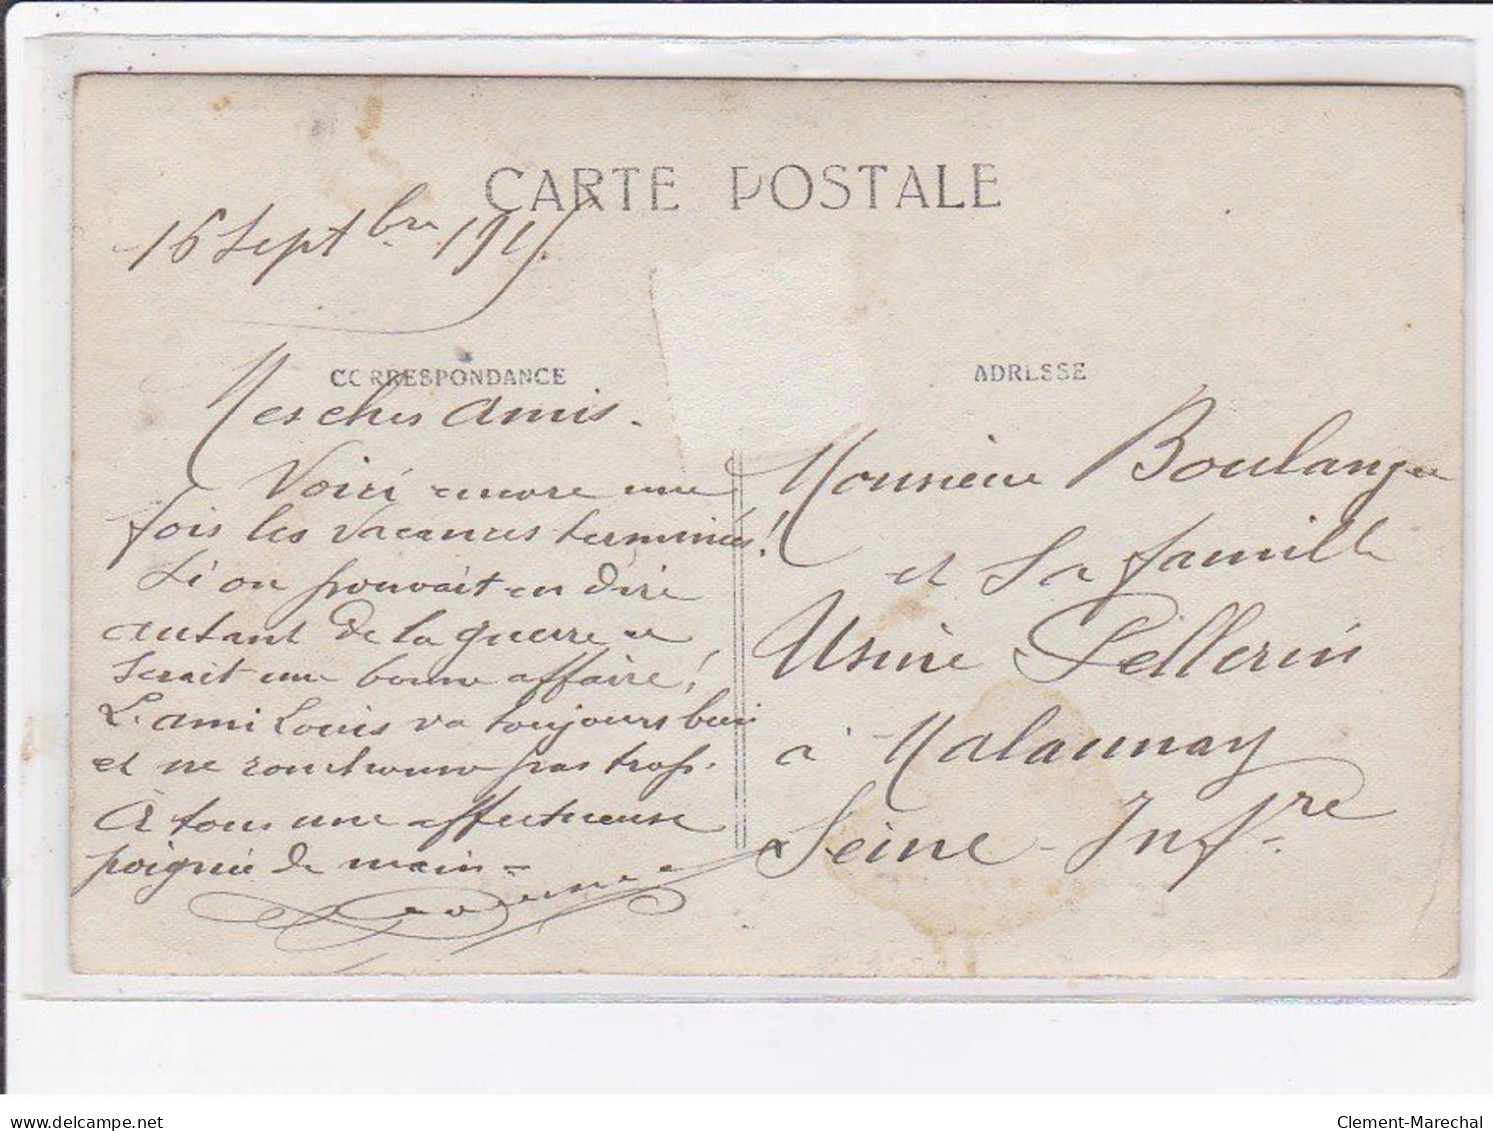 CARTE POSTALE
16 Septbre 1915
CORRESPONDANCE
Mes chers amis.
Voici encore une
fois les vacances terminées!
Si on pouvait en dire
autant de la guerre ce
serait une bonne affaire!
L'ami Louis va toujours bien
et ne pas trop.
à tous une affectueuse
poignée de main =
ADRESSE
Monsieur Boulanger
et Sa famille
Usine Pellerin
à Malaunay
Seine-Infre
delcampe.net
Clement-Marechal